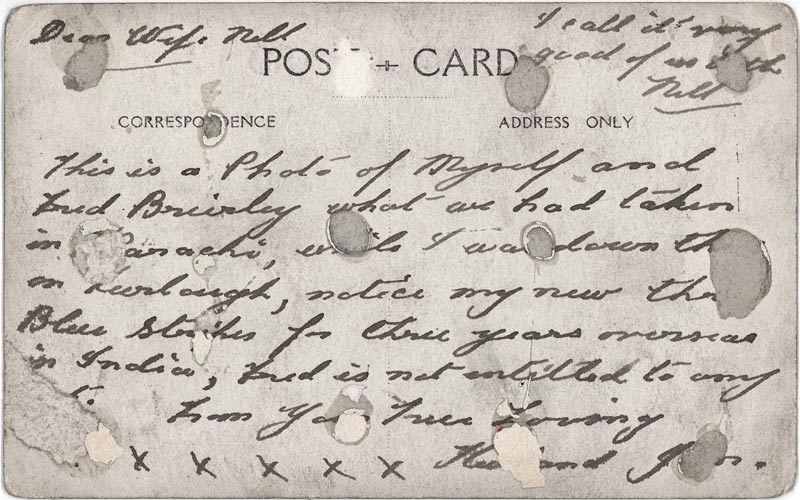 Dear Wife Nell
I call it very
good of us
Nell
POST CARD
CORRESPONDENCE
ADDRESS ONLY
This is a Photo of Myself and
Fred Brierley what we had taken
in Karachi, while I was down th
on furlough, notice my new th
Blue Stripes for three years overseas
in India, Fred is not entitled to any
From Your True Loving
Husband
x x x x x